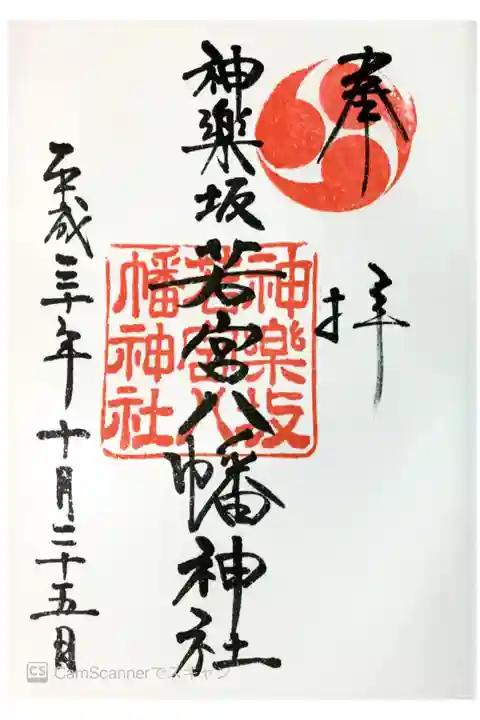 奉拝
神楽坂若宮八幡神社
神楽坂
若宮八
幡神社
平成三十年十月二十五日
CS CamScannerでスキャン